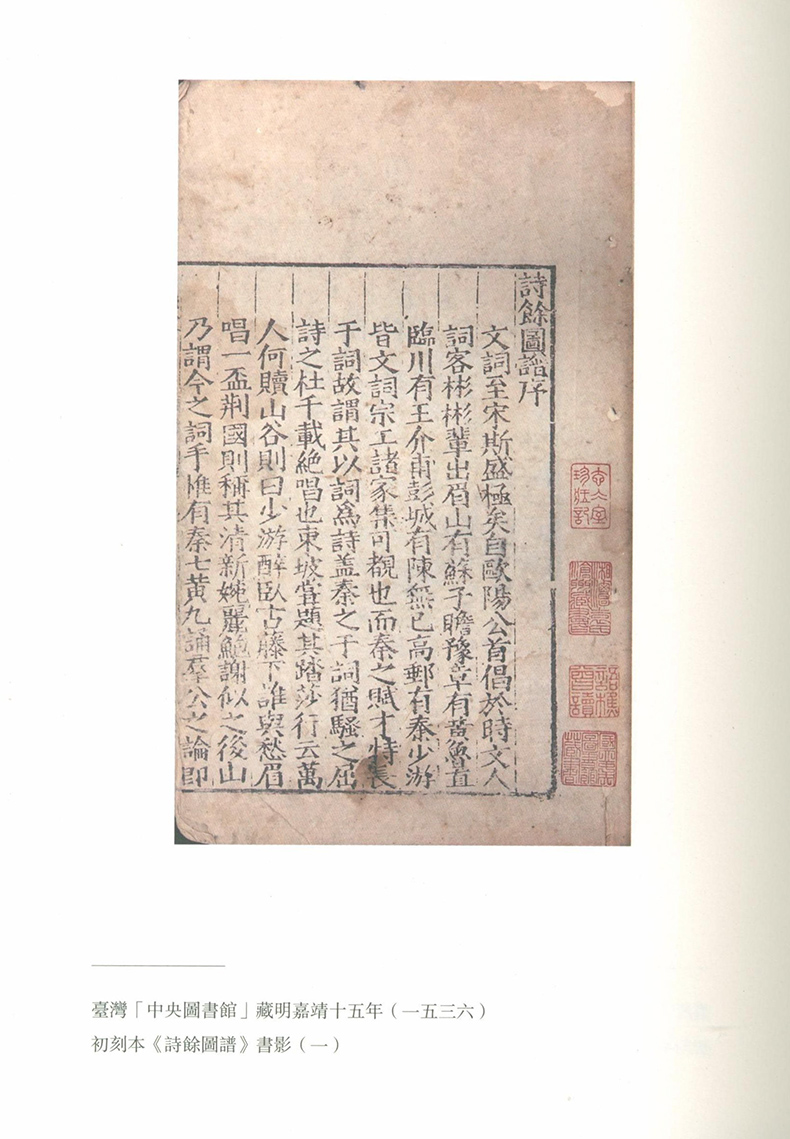 詩餘圖譜序
文詞至宋斯盛極矣自歐陽公首倡於時文人
詞客彬彬輩出眉山有蘇子瞻豫章有黃魯直
臨川有王介甫彭城有陳無已高郵有秦少游
皆文詞宗工諸家集可覩也而秦之賦才特長
于詞故謂其以詞為詩盖秦之于詞猶騷之屈
詩之杜千載絶唱也東坡嘗題其踏莎行云萬
人何贖山谷則曰少游醉臥古藤下誰與愁眉
唱一盃荆國則稱其清新婉麗鮑謝似之後山
乃謂今之詞手惟有秦七黃九誦羣公之論即
臺灣「中央圖書館」藏明嘉靖十五年（一五三六）
初刻本《詩餘圖譜》書影（一）